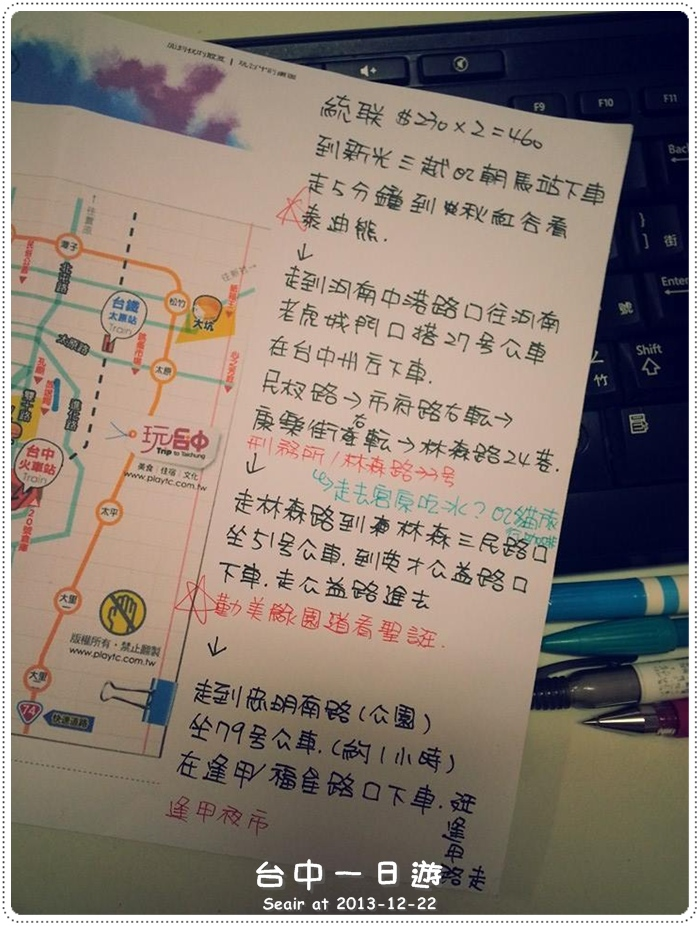 玩台中的風景
F9
F10
F11
統联 $230×2=460
到新光三越or朝馬站下車
走5分鐘到秋紅谷看
泰迪熊.
↓
走到河南中港路口往河南
老虎城門口搭27号公車
在台中州厅下車.
民权路→市府路右転→
康樂街右転→林森路24巷.
刑務所/林森路33号
↓
走去宮原吃冰?or貓
走林森路到林森三民路口
坐51号公車.到英才公益路口
下車.走公益路進去
勤美綠園道看聖誕.
↓
走到忠明南路(公園)
坐79号公車.(約1小時)
在逢甲/福星路口下車.逛逢甲路走
逢甲夜市
Back
街
Enter
號
Shift
竹
潭子
北屯路
民俗公園
台鐵
太原站
Train
松竹
大坑
太原路
太原
孔廟
雙十路
進化路
台中
火車站
Train
20號倉庫
玩台中
Trip to Taichung
美食|住宿|文化
www.playtc.com
太平
大里
版權所有‧禁止翻製
www.playtc.com.tw
大里
74
快速道路
台中一日遊
Seair at 2013-12-22